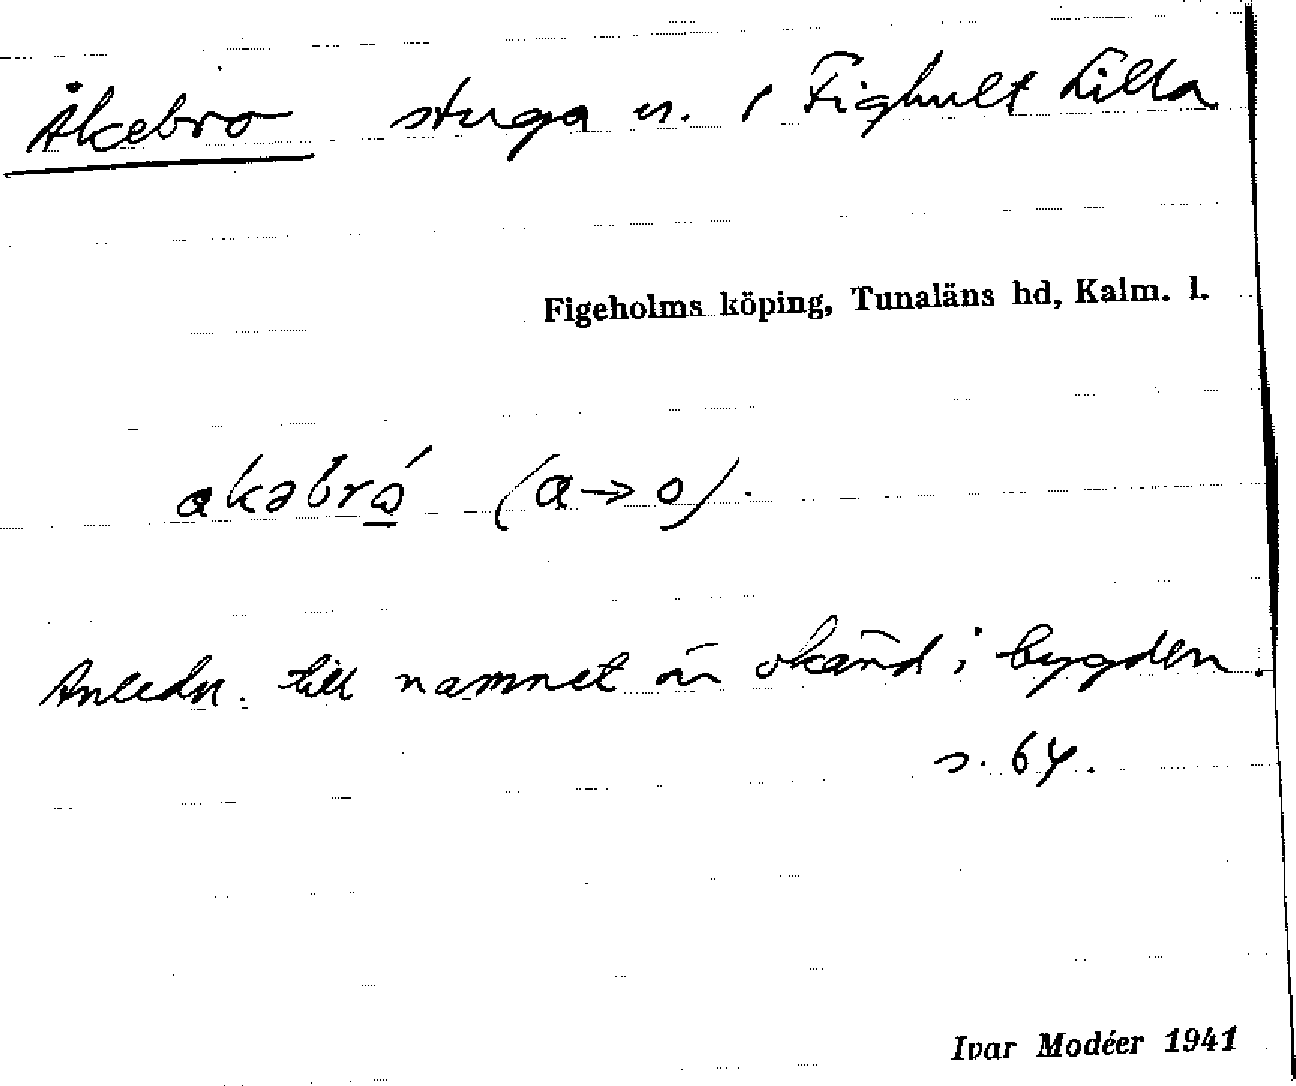 Åkebro stuga u. / Fighult Lilla
Figeholms köping, Tunaläns hd, Kalm. l.
akəbró (a→o).
Anledn. till namnet är okänd i bygden.
s. 64.
Ivar Modéer 1941